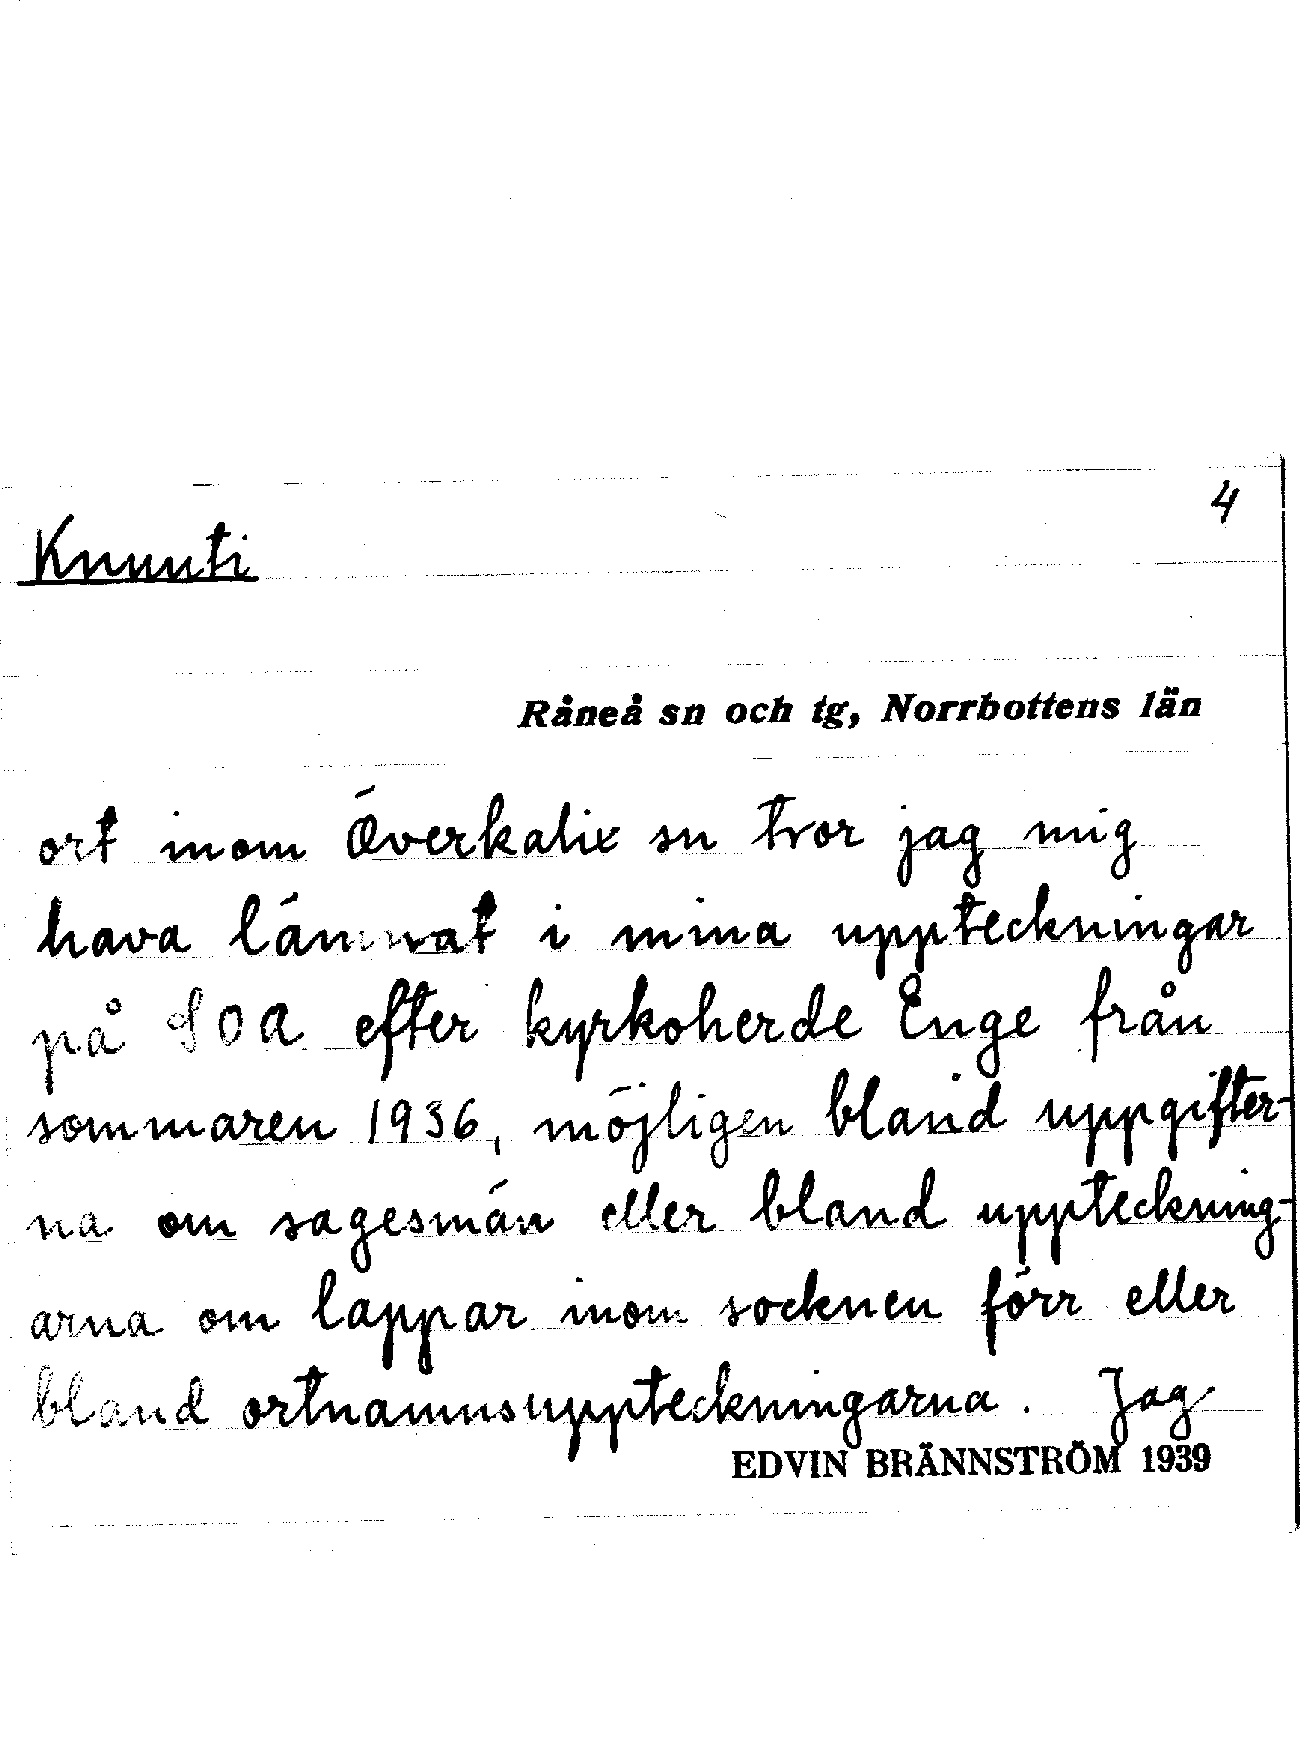 4
Knuuti
Råneå sn och tg, Norrbottens län
ort inom Överkalix sn tror jag mig
hava lämnat i mina uppteckningar
på SOA efter kyrkoherde Enge från
sommaren 1936, möjligen bland uppgifter-
na om sagesmän eller bland uppteckning-
arna om lappar inom socknen förr eller
bland ortnamnsuppteckningarna. Jag
EDVIN BRÄNNSTRÖM 1939